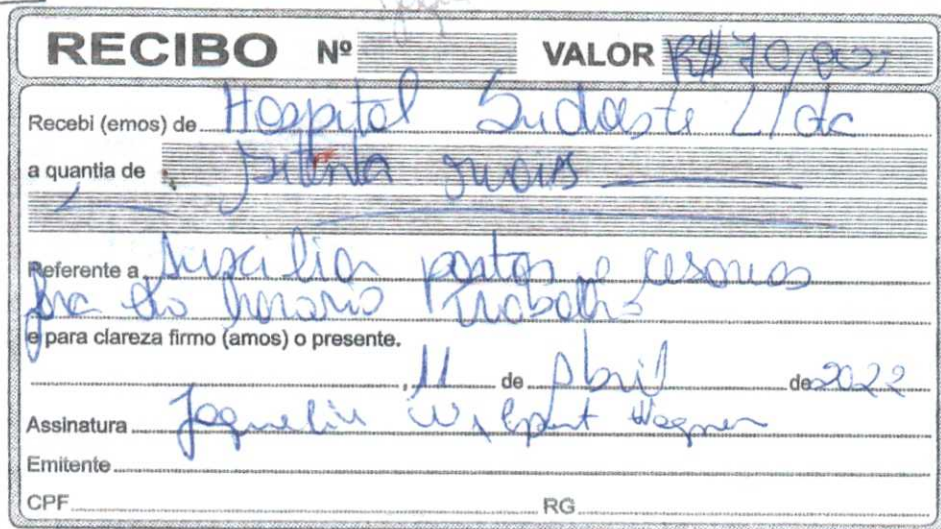 RECIBO Nº VALOR R$ 70,00
Recebi (emos) de Hospital Sudoeste Ltda
a quantia de Setenta reais
Referente a Auxilio partos e cesarias
fora do horario trabalho
e para clareza firmo (amos) o presente.
, 11 de Abril de 2022
Assinatura Jaqueline Wagner
Emitente
CPF RG